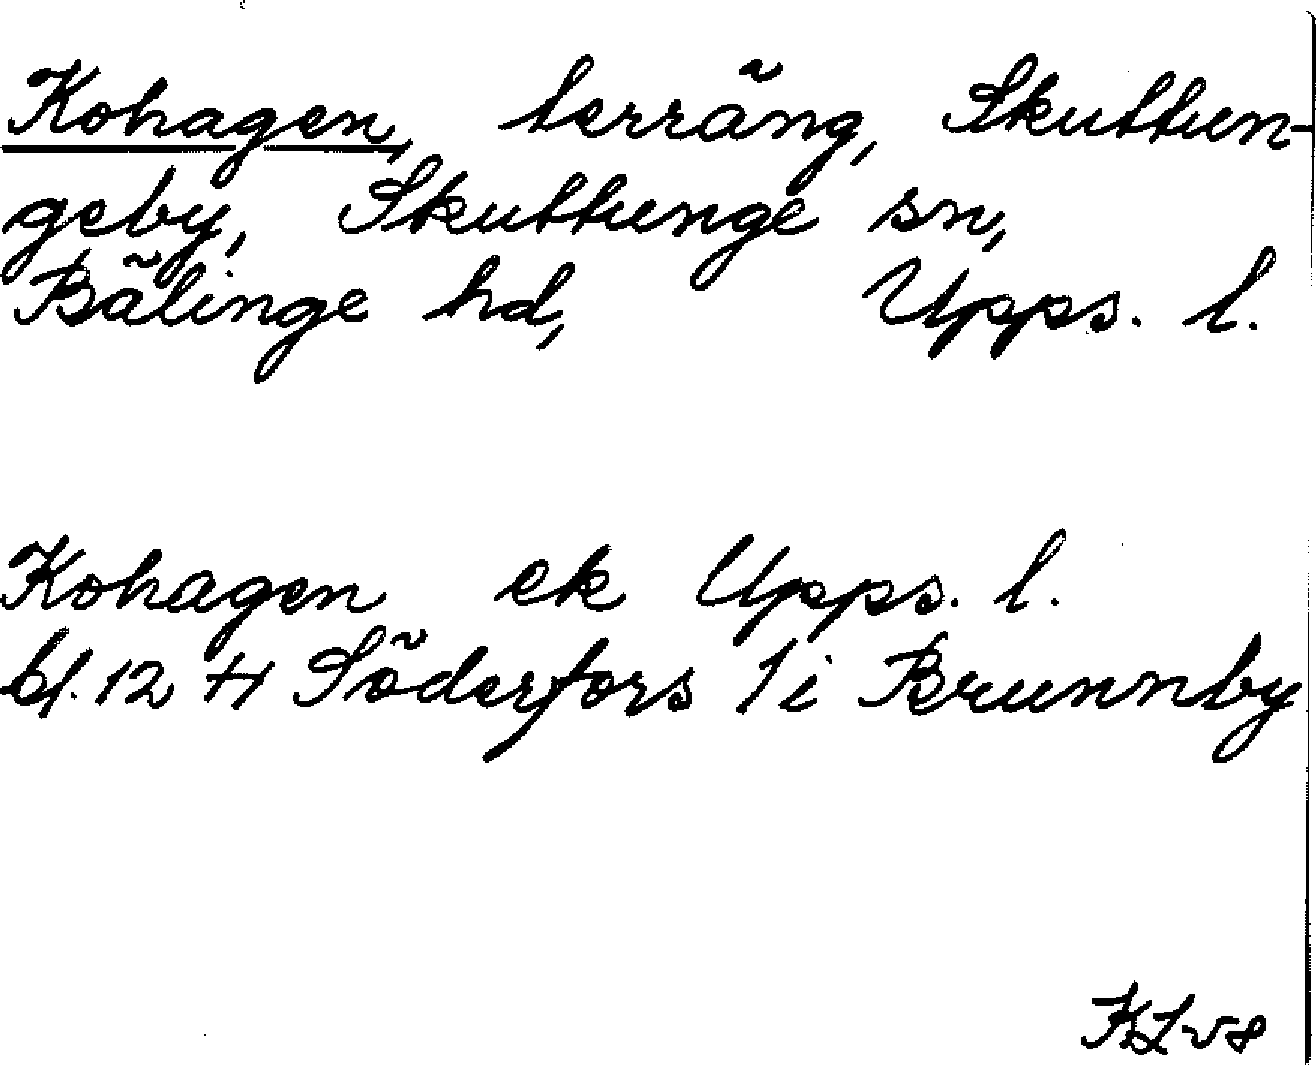 Kohagen, terräng, Skuttun-
geby, Skuttunge sn,
Bälinge hd, Upps. l.
Kohagen ek Upps. l.
bl. 12 H Söderfors 1i Brunnby